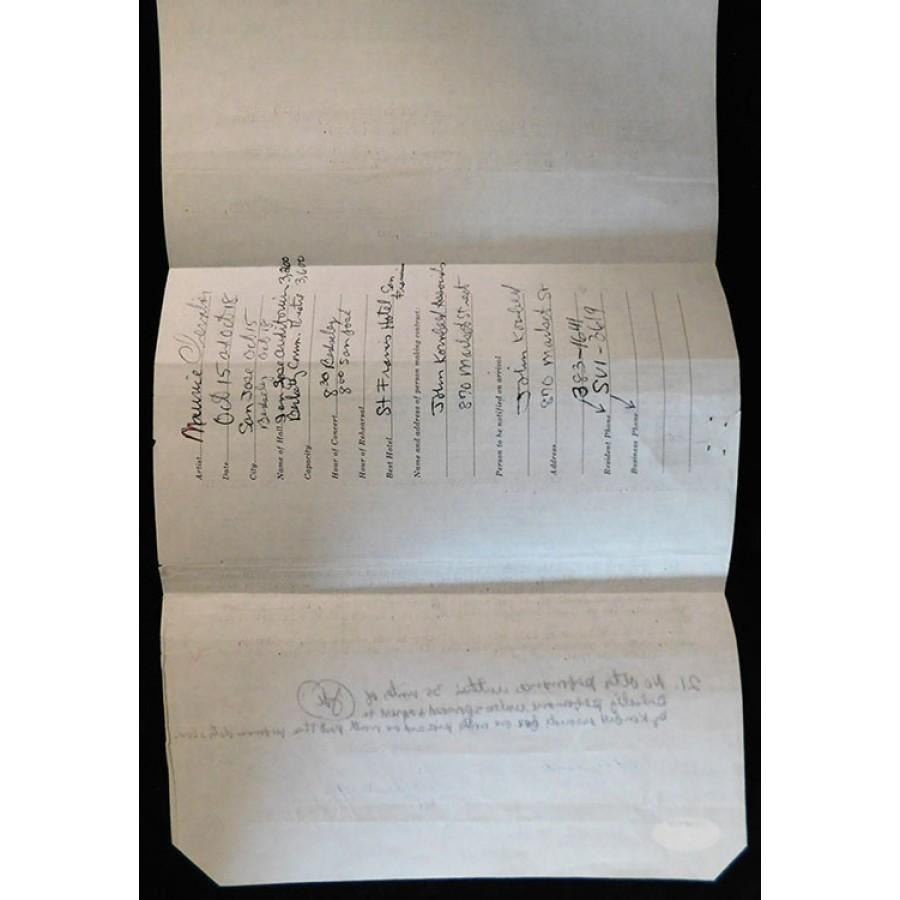 Artist Maurice Chevalier
Date Oct 15 and Oct 18
City San Jose Oct 15
Berkeley Oct 18
Name of Hall San Jose Auditorium 3,200
Berkeley Comm. Theatre 3,600
Capacity
Hour of Concert 8 30 Berkeley
8 00 San Jose
Hour of Rehearsal
Best Hotel St Francis Hotel San
Francisco
Name and address of person making contract:
John Kornfeld Associates
870 Market Street
Person to be notified on arrival
John Kornfeld
Address 870 Market St
383-1641
Resident Phone SU1-3619
Business Phone
21. No other performance within 35 miles of
Berkeley performance unless
by Kornfeld